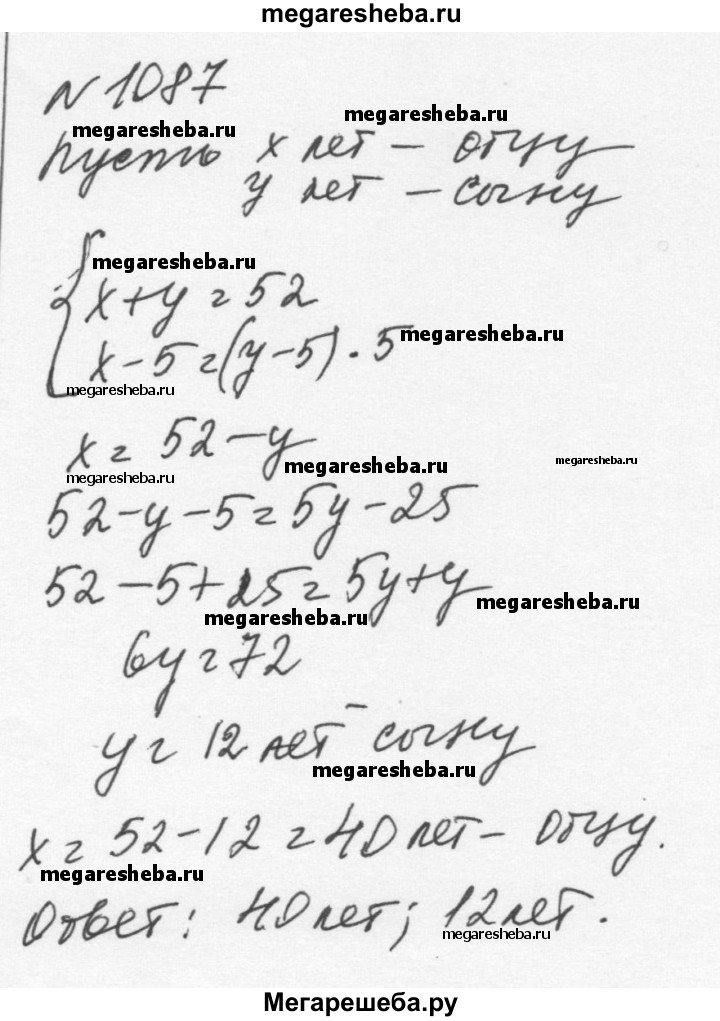 megaresheba.ru
N 1087
megaresheba.ru
megaresheba.ru
Пусть x лет – отцу
y лет – сыну
megaresheba.ru
x+y=52
x-5=(y-5)·5
megaresheba.ru
megaresheba.ru
x=52-y
megaresheba.ru
megaresheba.ru
megaresheba.ru
52-y-5=5y-25
52-5+25=5y+y
megaresheba.ru
megaresheba.ru
6y=72
y=12 лет – сыну
megaresheba.ru
x=52-12=40 лет – отцу.
megaresheba.ru
Ответ: 40 лет; 12 лет.
megaresheba.ru
Мегарешеба.ру